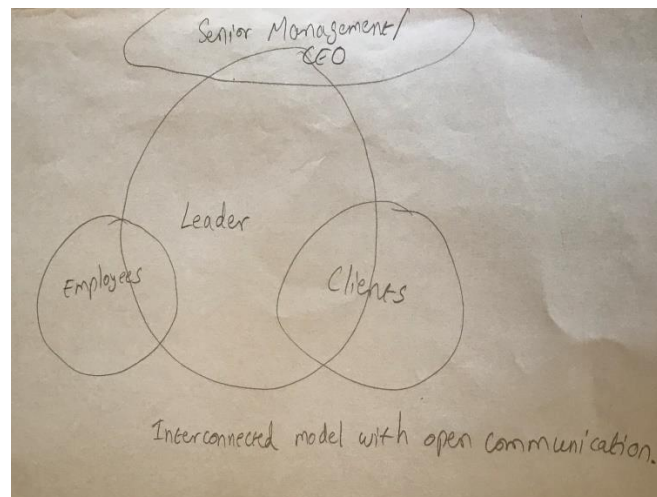 Senior Management/
CEO
Leader
Employees
Clients
Interconnected model with open communication.